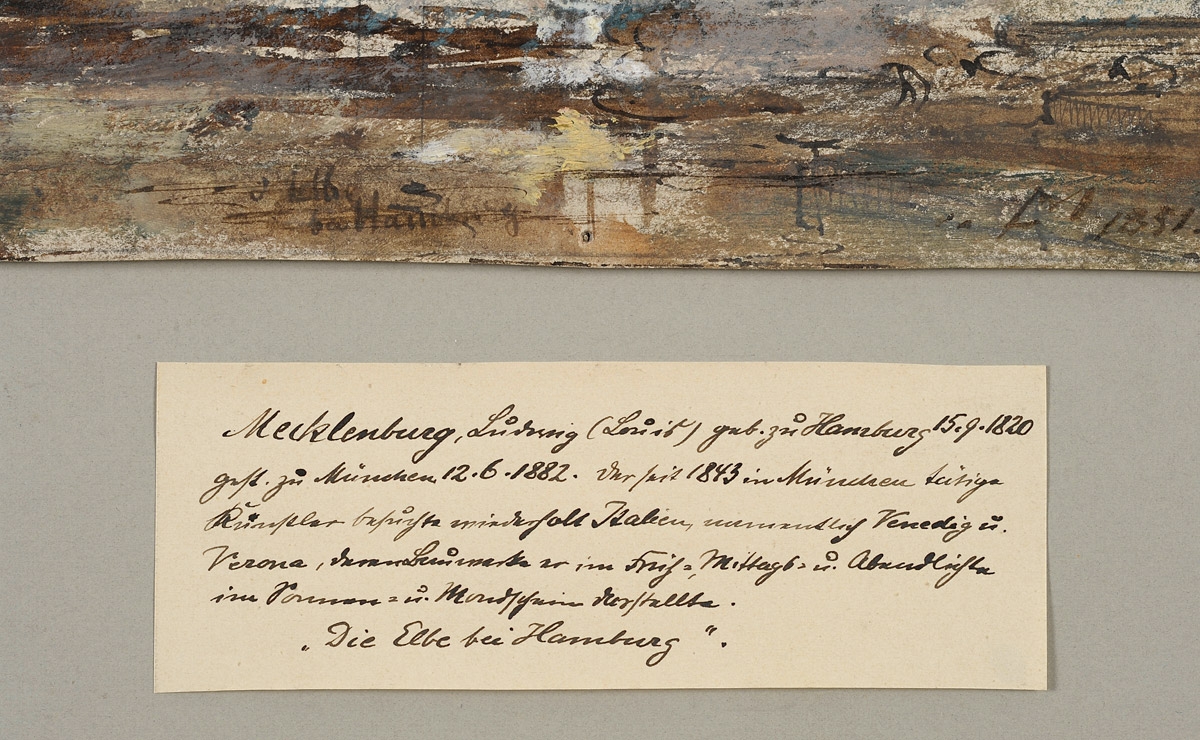 d Elbe
bei Hamburg
LM 1881.
Mecklenburg, Ludwig (Louis) geb. zu Hamburg 15.9.1820
gest. zu München 12.6.1882. Der seit 1843 in München tätige
Künstler besuchte wiederholt Italien, namentlich Venedig u.
Verona, deren Bauwerke er im Früh=, Mittags= u. Abendlichte
im Sonnen= u. Mondschein darstellte.
„Die Elbe bei Hamburg".